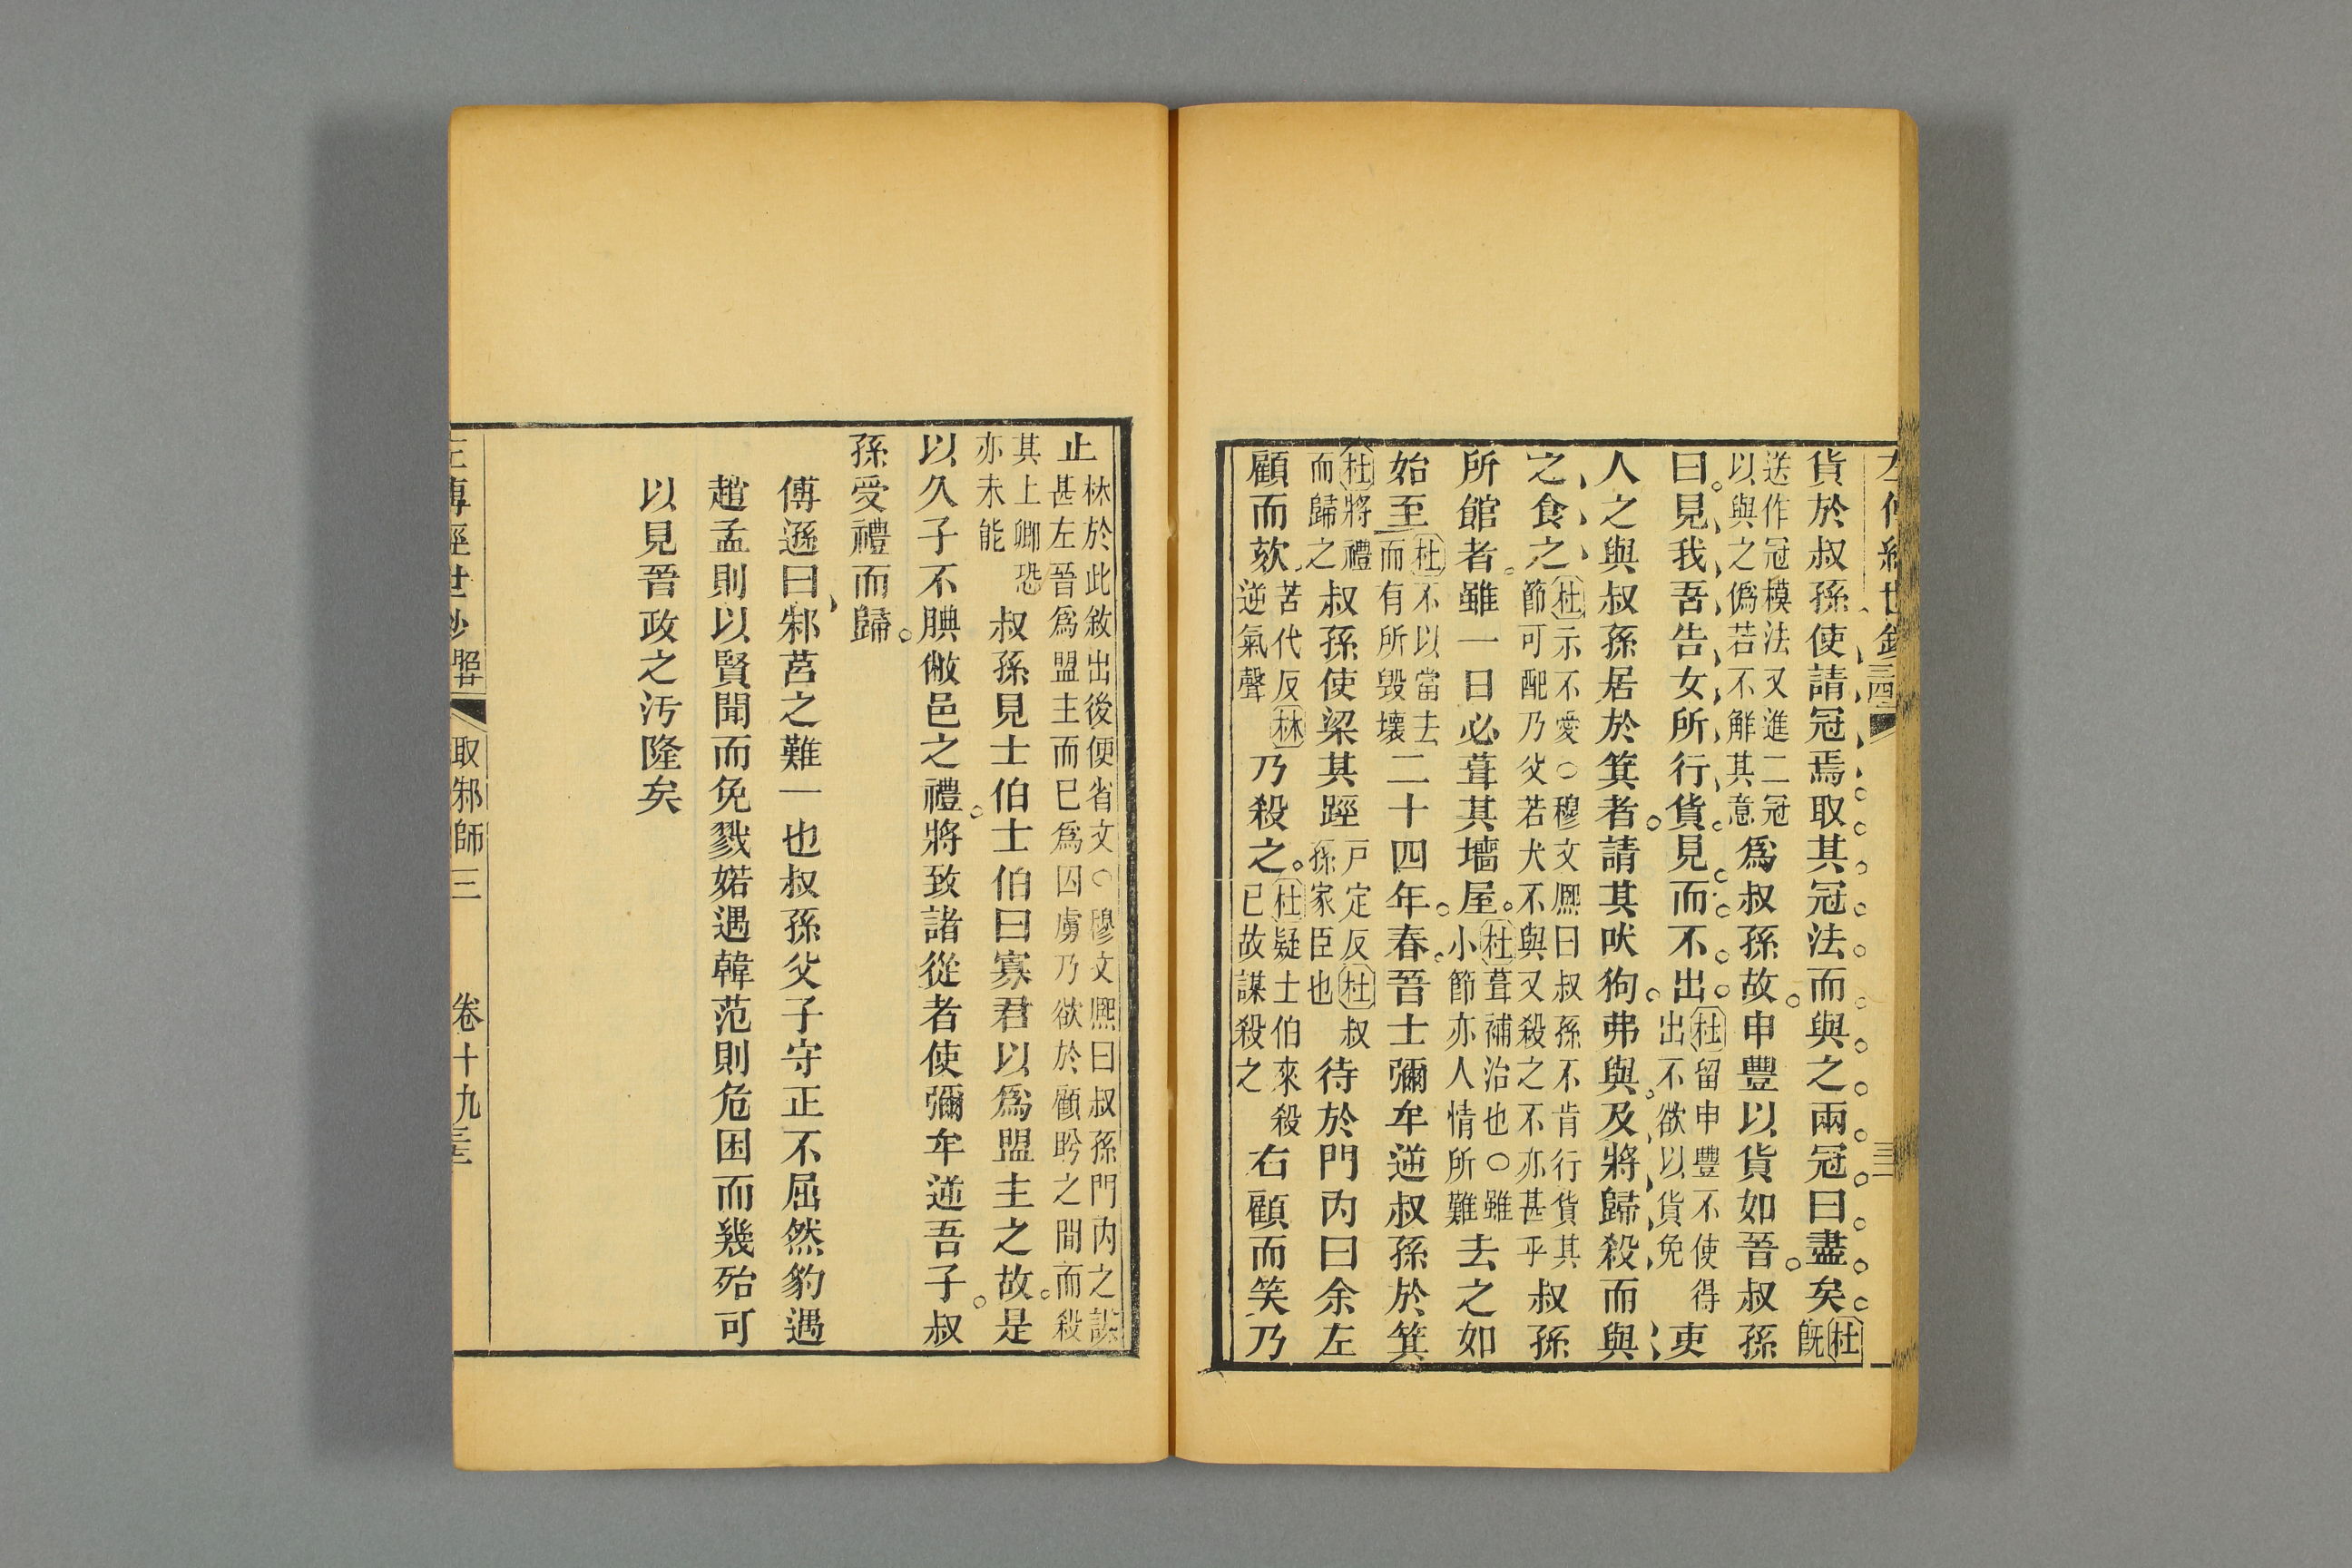 左傳經世鈔
貨於叔孫使請冠焉取其冠法而與之兩冠曰盡矣。杜既
送作冠模法又進二冠以與之僞若不解其意爲叔孫故。申豐以貨如晉。叔孫
曰。見我吾告女所行貨。見而不出。杜留申豐不使得出不欲以貨免吏
人之與叔孫居於箕者。請其吠狗。弗與。及將歸殺而與
之食之杜示不愛○穆文熙曰叔孫不肯行貨其節可配乃父若犬不與又殺之不亦甚乎叔孫
所館者。雖一日必葺其墻屋。杜葺補治也○雖小節亦人情所難去之如
始至杜不以當去而有所毀壞二十四年。春。晉士彌牟逆叔孫於箕
杜將禮而歸之叔孫使梁其踁戶定反杜叔孫家臣也待於門內曰余左
顧而欬苦代反林逆氣聲乃殺之。杜疑士伯來殺已故謀殺之右顧而笑乃
止林於此敘出後便省文○穆文熙曰叔孫門內之謀甚左晉爲盟主而已爲囚虜乃欲於顧盻之間而殺
其上卿恐亦未能叔孫見士伯士伯曰寡君以爲盟主之故。是
以久子不腆敝邑之禮。將致諸從者使彌牟逆吾子。叔
孫受禮而歸。
傅遜曰邾莒之難一也叔孫父子守正不屈然豹遇
趙孟則以賢聞而免戮婼遇韓范則危困而幾殆可
以見晉政之汚隆矣
取邾師三　卷十九